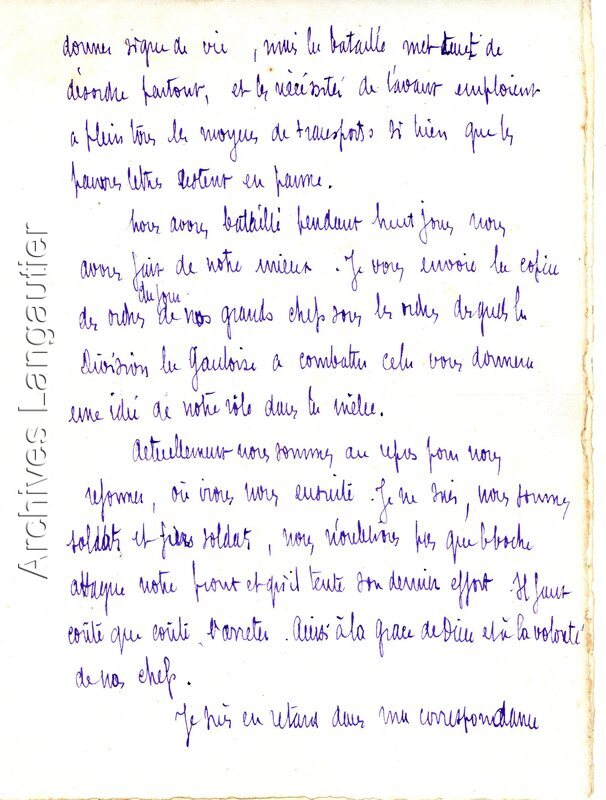 donner signe de vie, mais la bataille met tant de
désordre partout, et les nécéssités de l'avant emploient
a plein tous les moyens de transports si bien que les
pauvres lettres restent en panne.
Nous avons bataillé pendant huit jours nous
avons fait de notre mieux. Je vous envoie la copie
des ordres du jour de nos grands chefs sous les ordres desquels la
Division la Gauloise a combattu cela vous donnera
une idée de notre rôle dans la mêlée.
Actuellement nous sommes au repos pour nous
reformer, où irons nous ensuite. Je ne sais, nous sommes
soldats et fiers soldats, nous n'oublions pas que le boche
attaque notre front et qu'il tente son dernier effort. Il faut
coûte que coûte l'arreter. Ainsi à la grace de Dieu et à la volonté
de nos chefs.
Je suis en retard dans ma correspondance
Archives Langautier